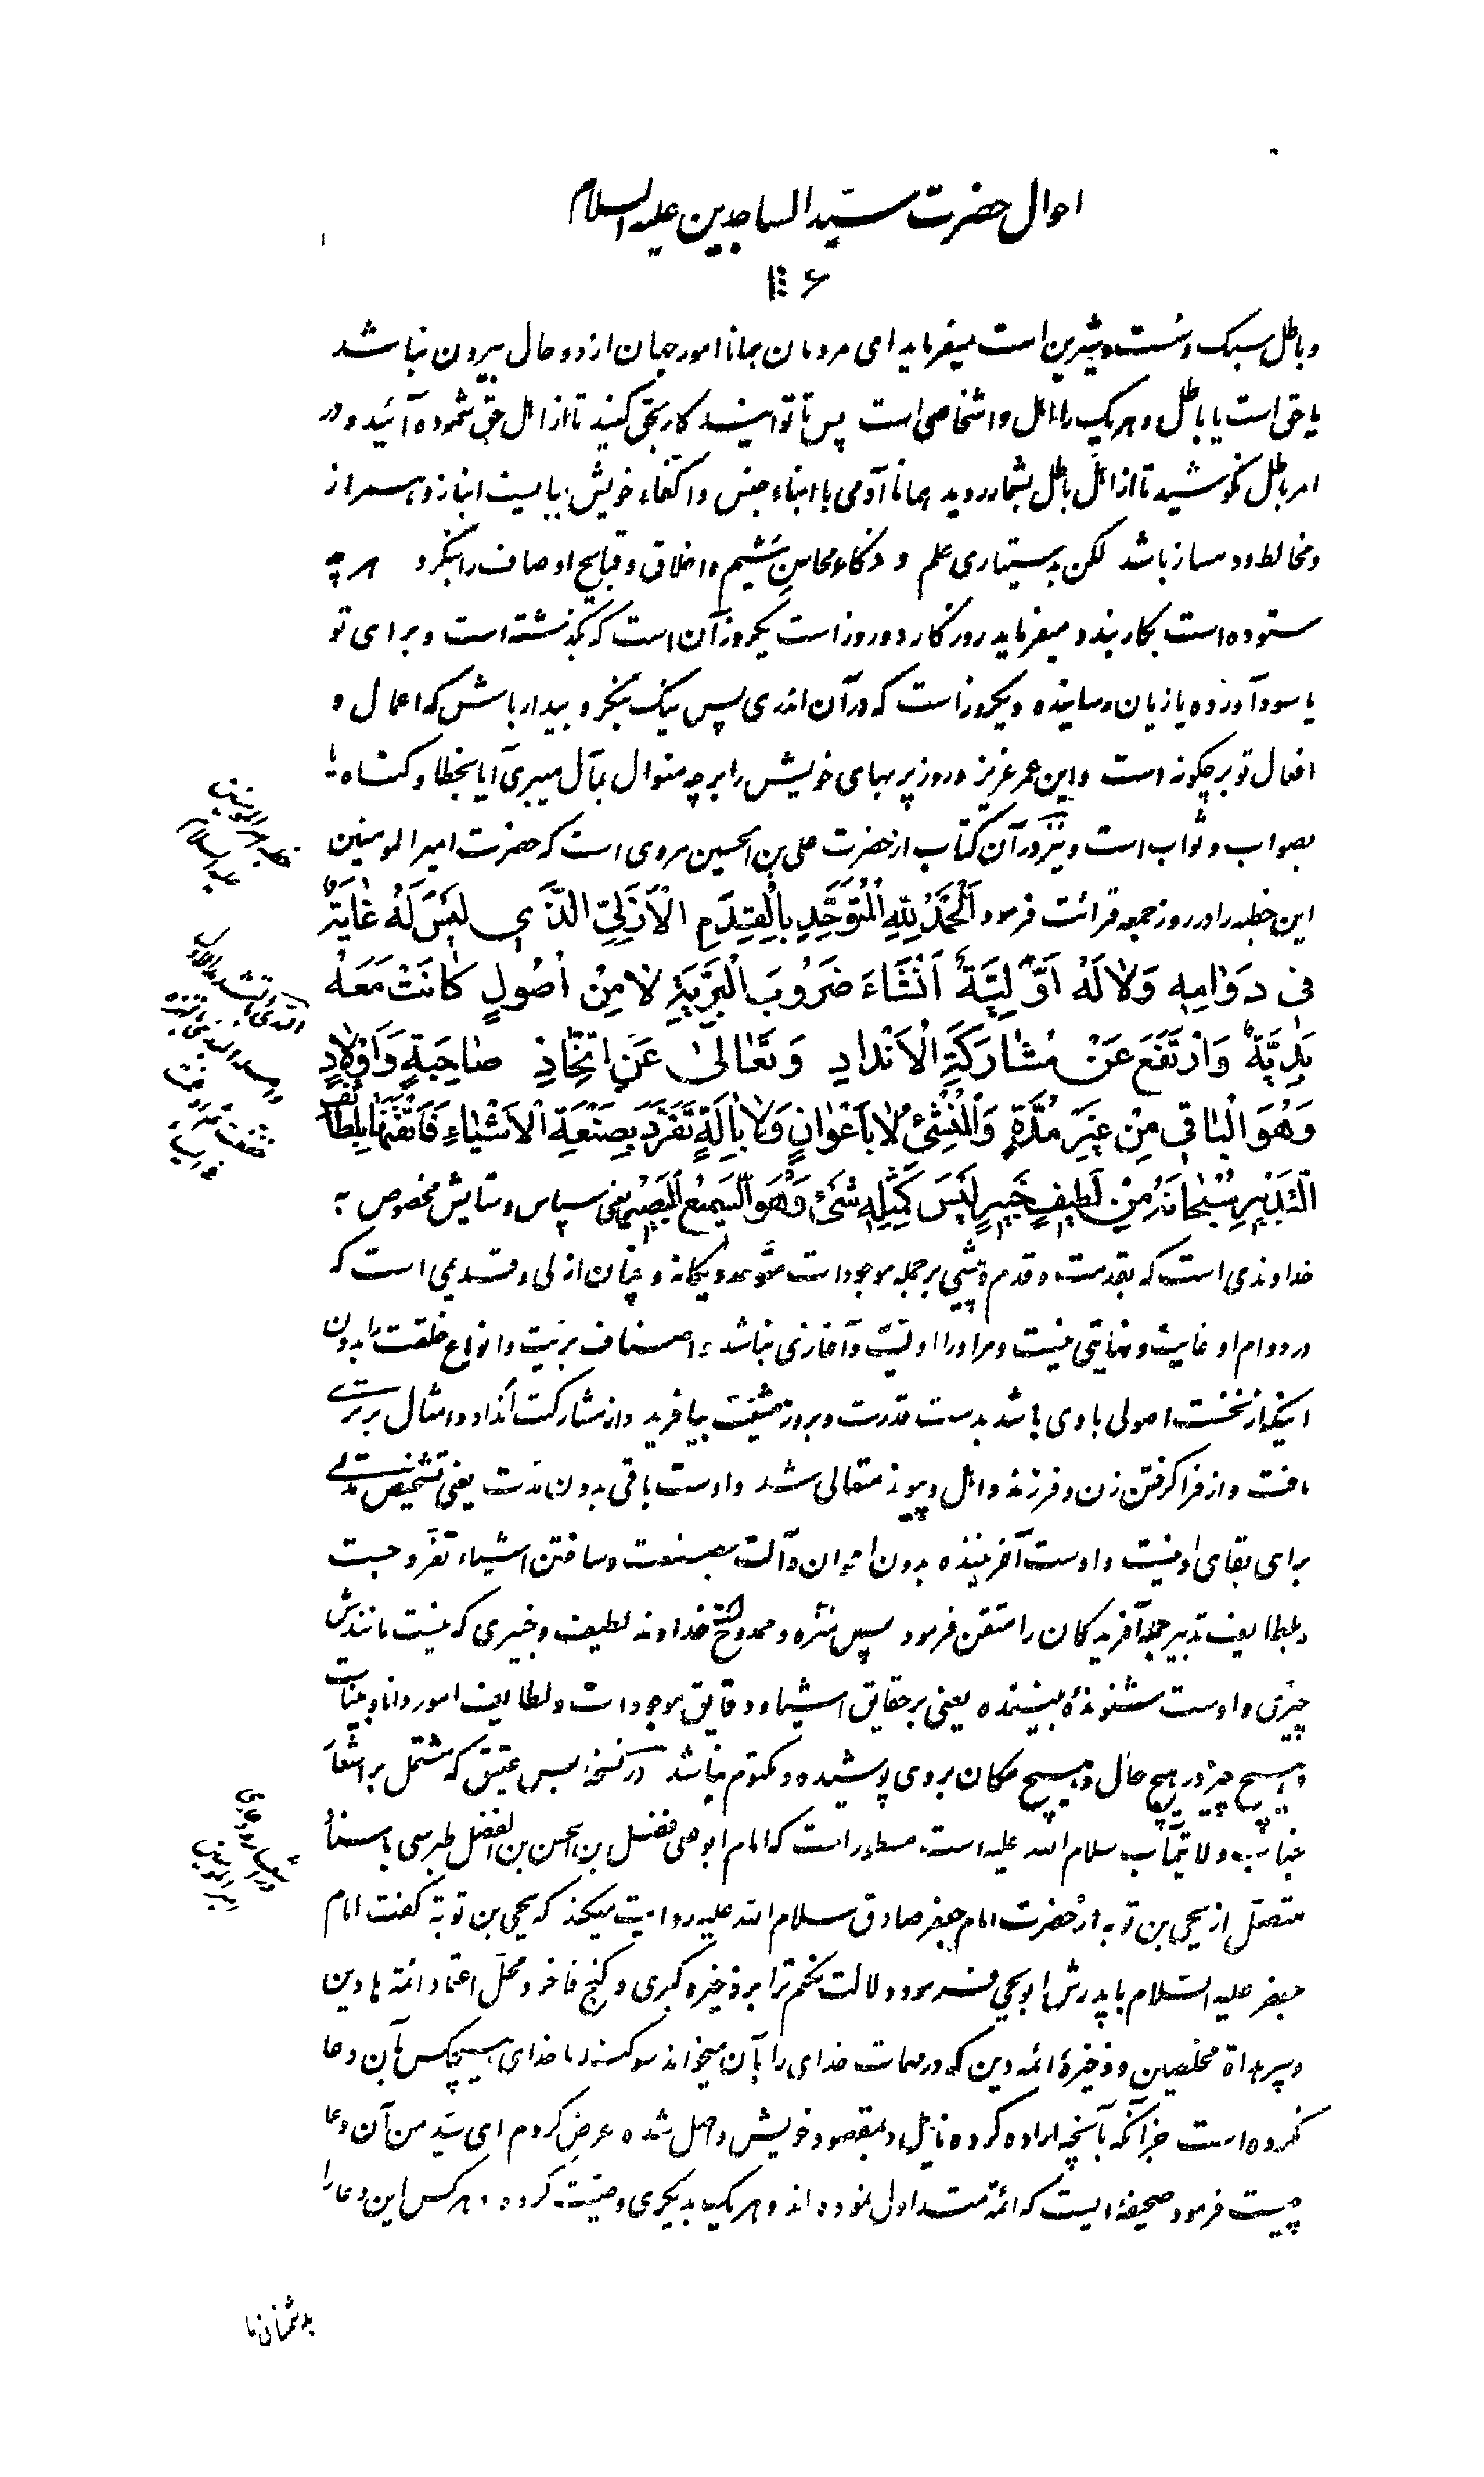 احوال حضرت سیّد الساجدین علیه السلام
۶
و باطل سبک و سست و شیرین است میفرماید ای مردمان همانا امور جهان از دو حال بیرون نباشد
یا حق است یا باطل و هر یک را اهل و اشخاصی است پس تا توانید کار بحق کنید تا از اهل حق شمرده آئید و در
امر باطل نکوشید تا از اهل باطل بشمار روید همانا آدمی با ابناء جنس و اکفاء خویش ببایست انباز و همراز
و مخالط و دمساز باشد لکن بدستیاری علم و ذکاء محاسن شیم و اخلاق و قبایح اوصاف را بنگرد هر چه
ستوده است بکار بندد میفرماید روزگار دو روز است یکروز آن است که بگذشته است و برای تو
یا سود آورده یا زیان رسانیده و یکروز است که در آن اندری پس نیک بنگر و بیدار باش که اعمال و
افعال تو بر چگونه است و این عمر عزیز و روز پر بهای خویش را بر چه منوال بمآل میبری آیا بخطا و گناه یا
بصواب و ثواب است و نیز در آن کتاب از حضرت علی بن الحسین مروی است که حضرت امیر المومنین
این خطبه را در روز جمعه قرائت فرمود اَلْحَمْدُ لِلّٰهِ الْمُتَوَحِّدِ بِالْقِدَمِ الْاَزَلِیِّ الَّذِی لَیْسَ لَهُ غٰایَةٌ
فِی دَوٰامِهِ وَلاٰ لَهُ اَوَّلِیَّةٌ اَنْشَاءَ ضُرُوبَ الْبَرِیَّةِ لاٰ مِنْ اُصُولٍ کٰانَتْ مَعَهُ
بَدِیَّةٌ وَارْتَفَعَ عَنْ مُشٰارَکَةِ الْاَنْدٰادِ وَتَعٰالیٰ عَنِ اتِّخٰاذِ صٰاحِبَةٍ وَاَوْلاٰدٍ
وَهُوَ الْبٰاقِی مِنْ غَیْرِ مُدَّةٍ وَالْمُنْشِیءُ لاٰ بِاَعْوٰانٍ وَلاٰ بِاٰلَةٍ تَفَرَّدَ بِصَنْعَةِ الْاَشْیٰاءِ فَاَتْقَنَهٰا بِلَطٰائِفِ
التَّدْبِیرِ سُبْحٰانَهُ مِنْ لَطِیفٍ خَبِیرٍ لَیْسَ کَمِثْلِهِ شَیْءٌ وَهُوَ السَّمِیعُ الْبَصِیرُ یعنی سپاس و ستایش مخصوص به
خداوندی است که بقدمت و قدم و پیشی بر جمله موجودات متوحد و یگانه و چنان ازلی و قدیمی است که
در دوام او غایت و نهایتی نیست و مر او را اولیّت و آغازی نباشد اصناف بریّت و انواع خلقت را بدون
اینکه از نخست اصولی با وی باشد بدست قدرت و بروز مشیّت بیافرید و از مشارکت انداد و امثال برتری
یافت و از فرا گرفتن زن و فرزند و اهل و پیوند متعالی شد و اوست باقی بدون مدّت یعنی تشخیص مدتی
برای بقای او نیست و اوست آفریننده بدون اعوان و آلت بصنعت و ساختن اشیاء تفرّد جست
و بلطایف تدبیر جمله آفریدگان را متقن فرمود سپس منزه و ممدوح خداوند لطیف و خبیری که نیست مانندش
چیزی و اوست شنوندهٔ بیننده یعنی بر حقایق اشیا و دقایق موجودات و لطایف امور دانا و بیناست
و هیچ چیز در هیچ حال و هیچ مکان بر وی پوشیده و مکتوم نباشد در نسخهٔ بس عتیق که مشتمل بر اشعار
جناب ولایتمآب سلام الله علیه است مسطور است که امام ابو علی فضل بن الحسن بن الفضل طبرسی باسناد
متصل از یحیی بن توبه از حضرت امام جعفر صادق سلام الله علیه روایت میکند که یحیی بن توبه گفت امام
جعفر علیه السّلام با پدرش ابو یحیی فرمود دلالت نکنم ترا بر ذخیره کبری و گنج فاخر و محلّ اعتماد ائمّه هادین
و سیر هداة مخلصین و ذخیرهٔ ائمه دین که در مهمات خدای را بآن میخوانند سوگند با خدای هیچکس بآن دعا
نکرده است جز آنکه بآنچه اراده کرده نایل و بمقصود خویش واصل شده عرض کردم ای سیّد من آن دعا
چیست فرمود صحیفهٔ ایست که ائمّه متداول نموده اند و هر یک بدیگری وصیّت کرده و هر کس این دعا را
خطبه امیر المومنین
علیه السلام
بدشمنان ما